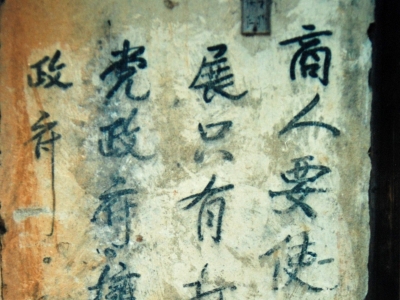 商人要使
展只有
党政府
政府